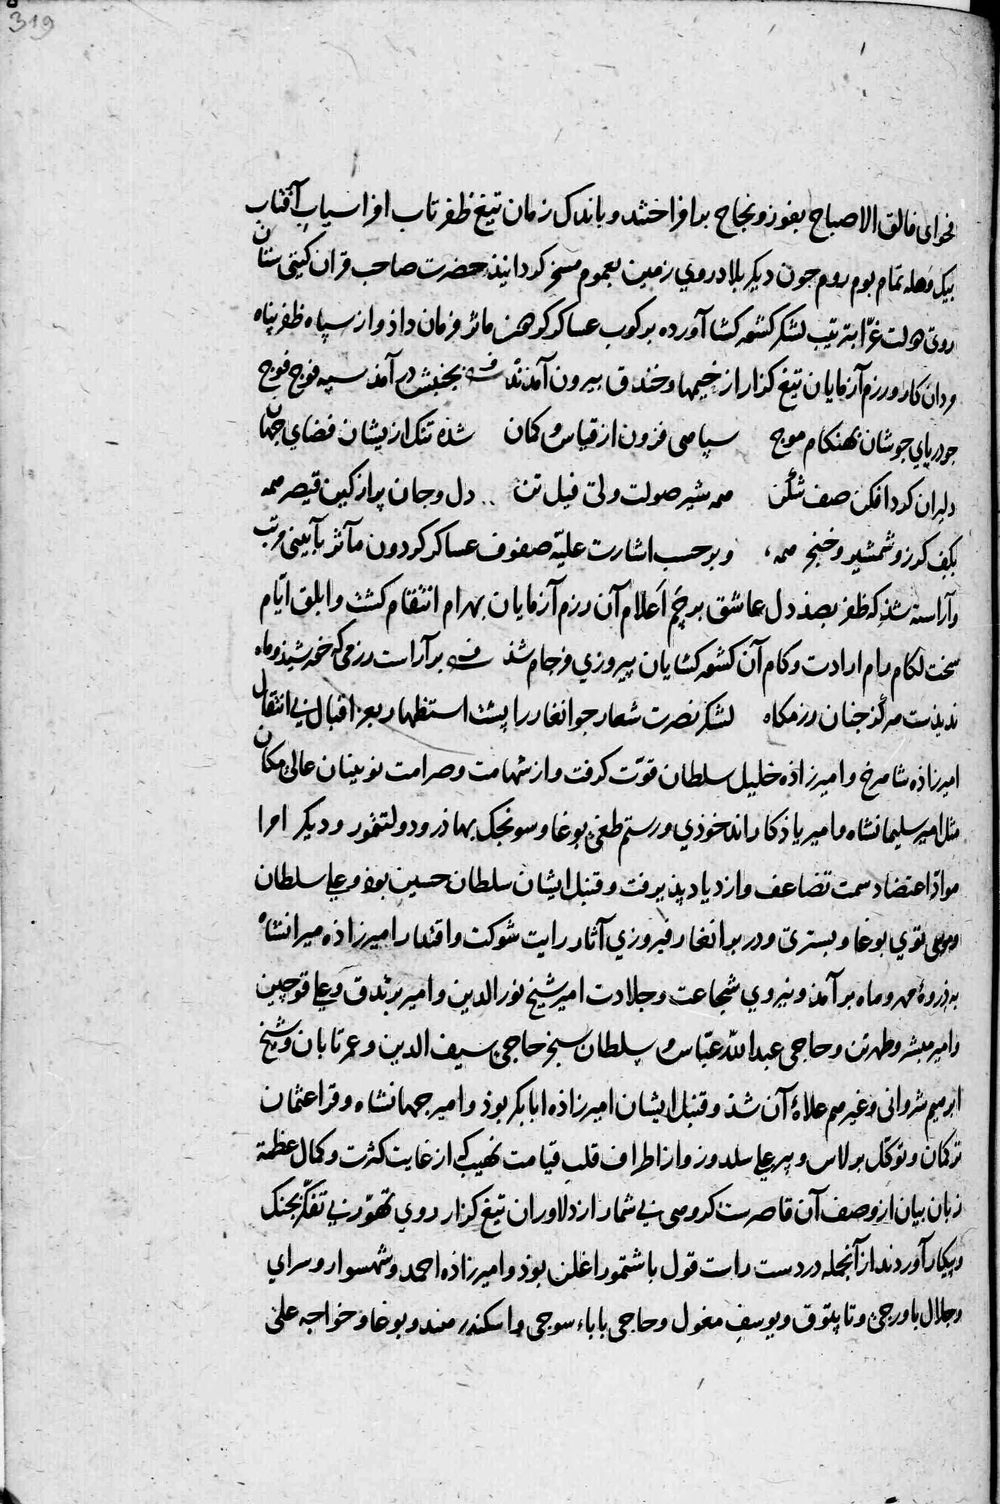 319
فحوای فالق الاصباح بفوز و نجاح برافراختند و باندک زمان تیغ ظفر تاب افراسیاب آفتاب
بیک وهله تمام بوم روم چون دیکر بلاد روی زمین بعموم مسخر کردانیذ حضرت صاحب قران کیتی ستان
روی دولت غرّا بترتیب لشکر کشور کشا آورده برکوب عساکر فرمان داذ و از سپاه ظفر پناه
مردان کار و رزم آزمایان تیغ کزار از خیمها و خندق بیرون آمدند بجنبش درآمذ سپه فوج فوج
چو دریای جوشان بهنکام موج سپاهی فزون از قیاس و کمان شذه تنک ازیشان فضای جهان
دلیران کرد افکن صف شکن همه شیر صولت ولی فیل تن دل و جان پر از کین قیصر همه
بکف کرز و شمشیر و خنجر همه و بر حسب اشارت علیّه صفوف عساکر کردون مآثر بآیینی مرتب
و آراسته شذ که ظفر بصذ دل عاشق پرچم اَعلام آن رزم آزمایان بهرام انتقام کشت و ابلق ایّام
سخت لکام رام ارادت و کام آن کشور کشایان پیروزی فرجام شذ برآراست رزمی که خورشیذ و ماه
ندیذست هرکز چنان رزمکاه لشکر نصرت شعار جوانغار را پشت استظهار بعز اقبال بی انتقال
امیرزاذه شاهرخ و امیرزاذه خلیل سلطان قوّت کرفت و از شهامت و صرامت نوینان عالی مکان
مثل امیر سلیمانشاه و امیر یاذکار اندخوذی و رستم طغی بوغا و سونجک بهاذر و دولتمور و دیکر امرا
موادّ اعتضاد سمت تضاعف و ازدیاد پذیرفت و قنبل ایشان سلطان حسین بوذ و علی سلطان
و موسی توی بوغا و بستری و در برانغار فیروزی آثار رایت شوکت و اقتدار امیرزاذه میرانشاه
بذروهٔ مهر و ماه برآمذ و نیروی شجاعت و جلادت امیر شیخ نور الدین و امیر برندق و علی قوجین
و امیر مبشر و طهرتن و حاجی عبد الله عبّاس و سلطان سنجر حاجی سیف الدین و عمر تابان و شیخ
ابرهیم شروانی و غیرهم علاوهٔ آن شذ و قنبل ایشان امیرزاذه ابابکر بوذ و امیر جهانشاه و قرا عثمان
ترکمان و توکل برلاس و پیر علی سلدوز و از اطراف قلب قیامت نهیب که از غایت کثرت و کمال عظمة
زبان بیان از وصف آن قاصرست کروهی بی شمار از دلاوران تیغ کزار روی تهوّر بی تفکر بجنک
و پیکار آوردند از آنجمله در دست راست قول باشتمور اغلن بوذ و امیرزاذه احمد و شهسوار و سرای
و جلال باورجی و تا پتوق و یوسف مغول و حاجی بابا سوجی و اسکندر هندو بوغا و خواجه علی